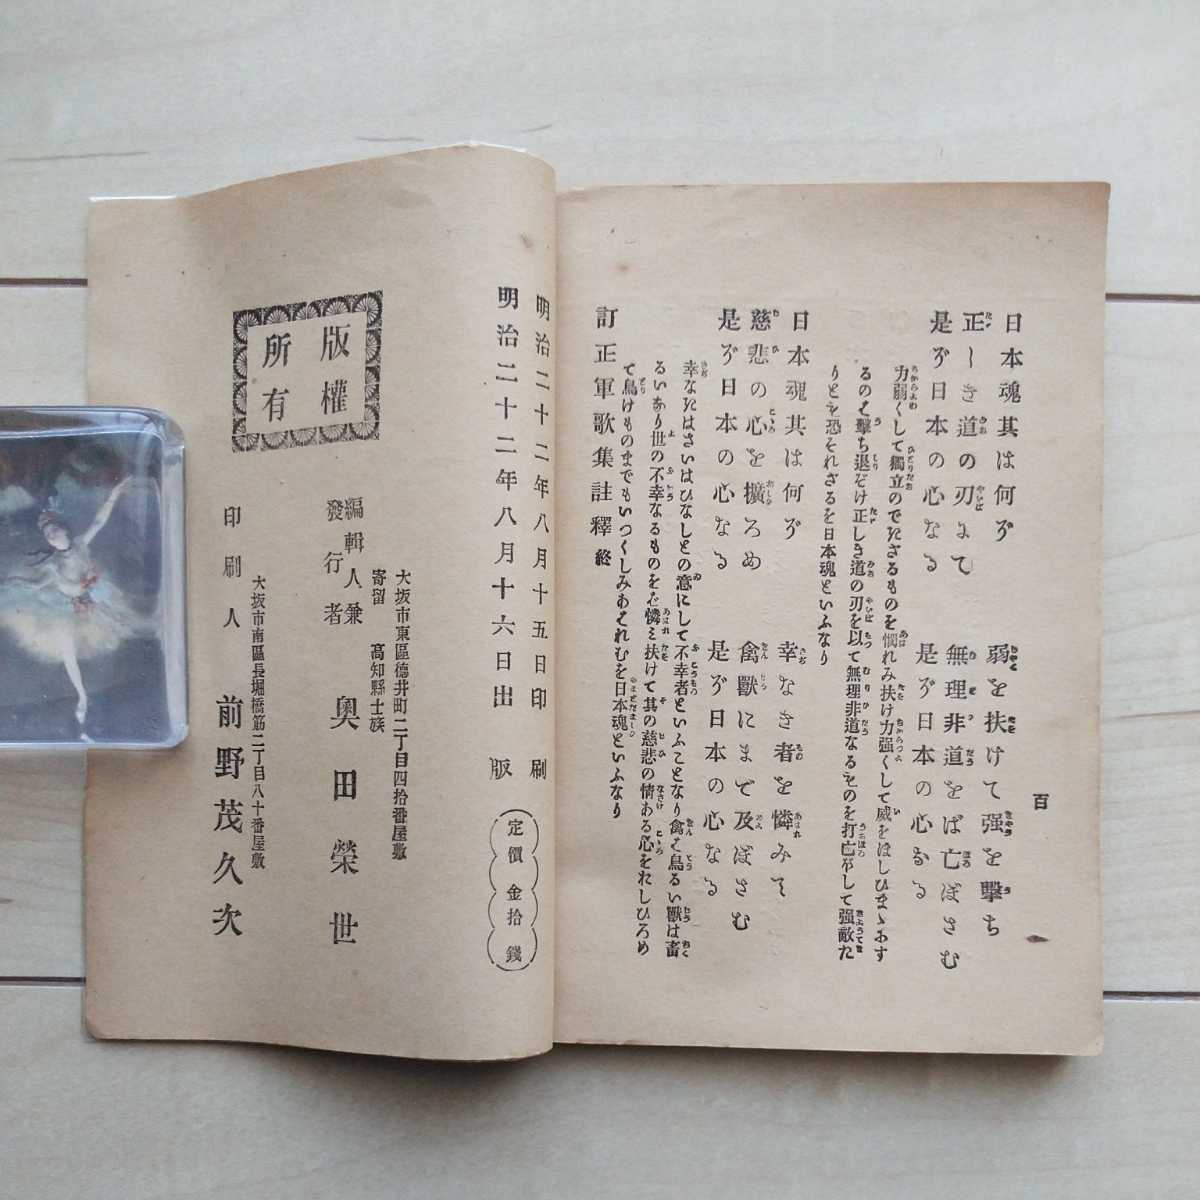 百
日本魂其は何ぞ
正しき道の刃よて
是ぞ日本の心なる
弱を扶けて强を擊ち
無理非道をば亡ぼさむ
是ぞ日本の心なる
力弱くして獨立のできざるものを憫れみ扶け力强くして威をほしひまゝふす
るのを擊ち退ぞけ正しき道の刃を以て無理非道なるものを打亡ぼして强敵た
りとも恐それざるを日本魂といふなり
日本魂其は何ぞ
慈悲の心を擴ろめ
是ぞ日本の心なる
幸なき者を憐みて
禽獸にまで及ぼさむ
是ぞ日本の心なる
幸なきはさいはひなしとの意にして不幸者といふことなり禽と鳥るい獸は畜
るいあり世の不幸なるものをば憐み扶けて其の慈悲の情ある心をおしひろめ
て鳥けものまでもいつくしみあはれむを日本魂といふなり
訂正軍歌集註釋終
明治二十二年八月十五日印刷
明治二十二年八月十六日出版
定價金拾錢
版權
所有
大坂市東區德井町二丁目四拾番屋敷
寄留 高知縣士族
編輯人兼
發行者
奧田榮世
大坂市南區長堀橋筋二丁目八十番屋敷
印刷人 前野茂久次